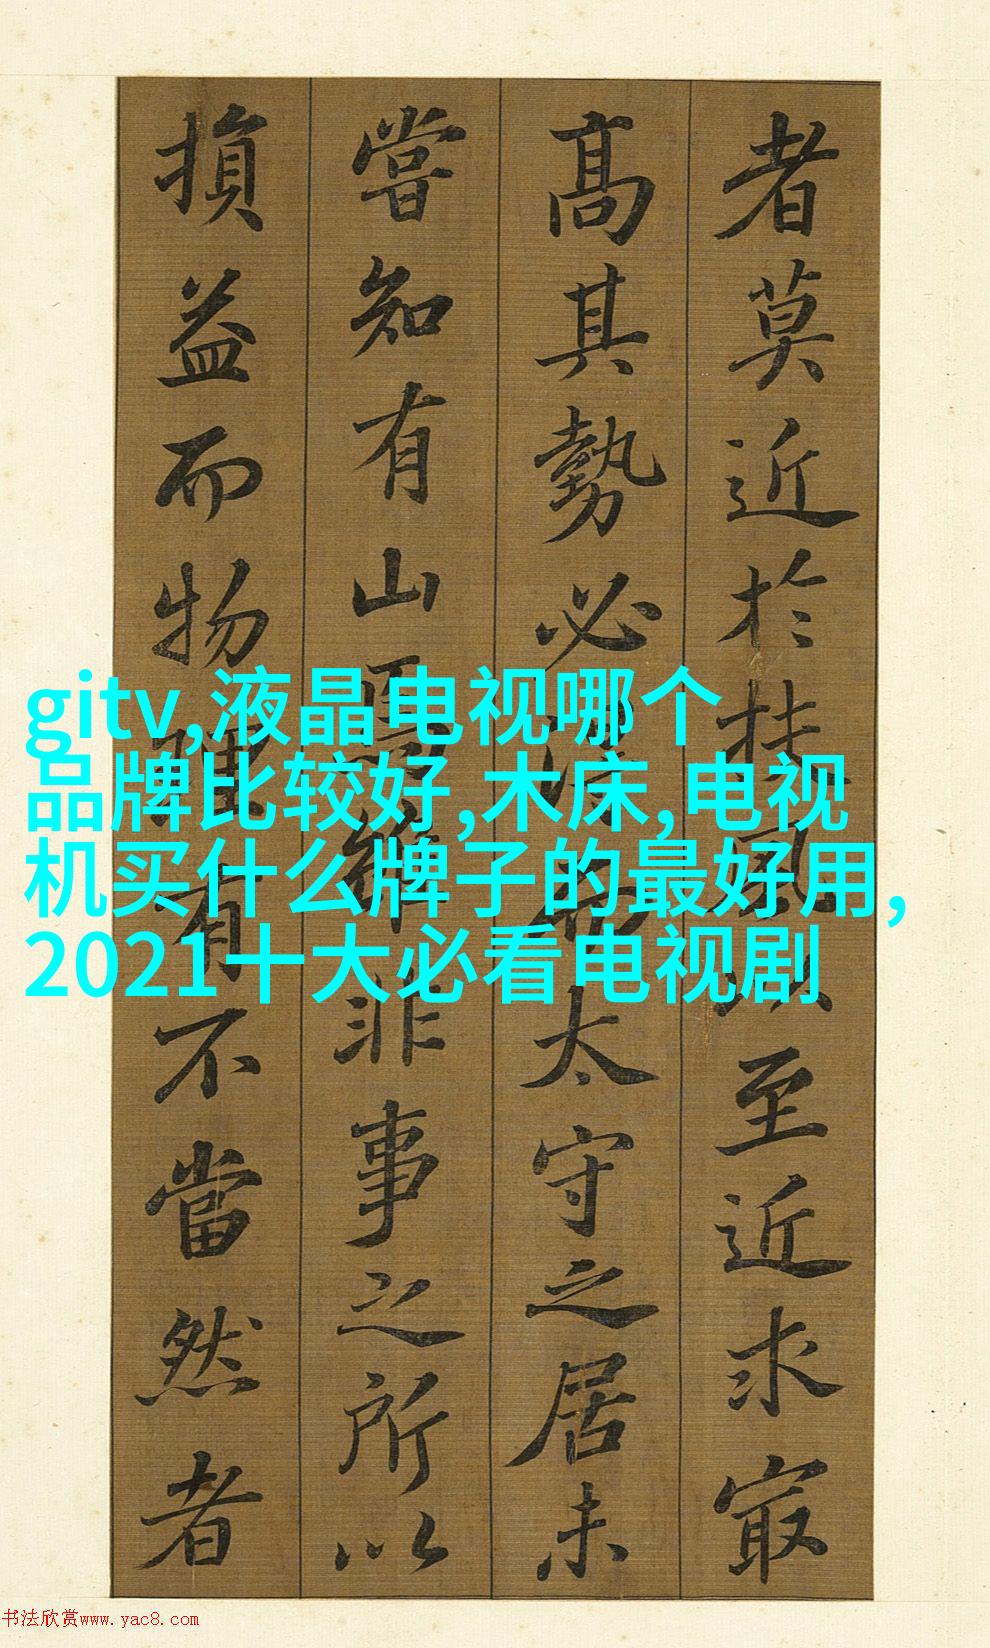 者莫近於扶風以至近求最
高其勢必得而太守之居未
嘗知有山焉雖非事之所以
損益而物理有不當然者
gitv,液晶电视哪个
品牌比较好,木床,电视
机买什么牌子的最好用,
2021十大必看电视剧
书法欣赏www.yac8.com